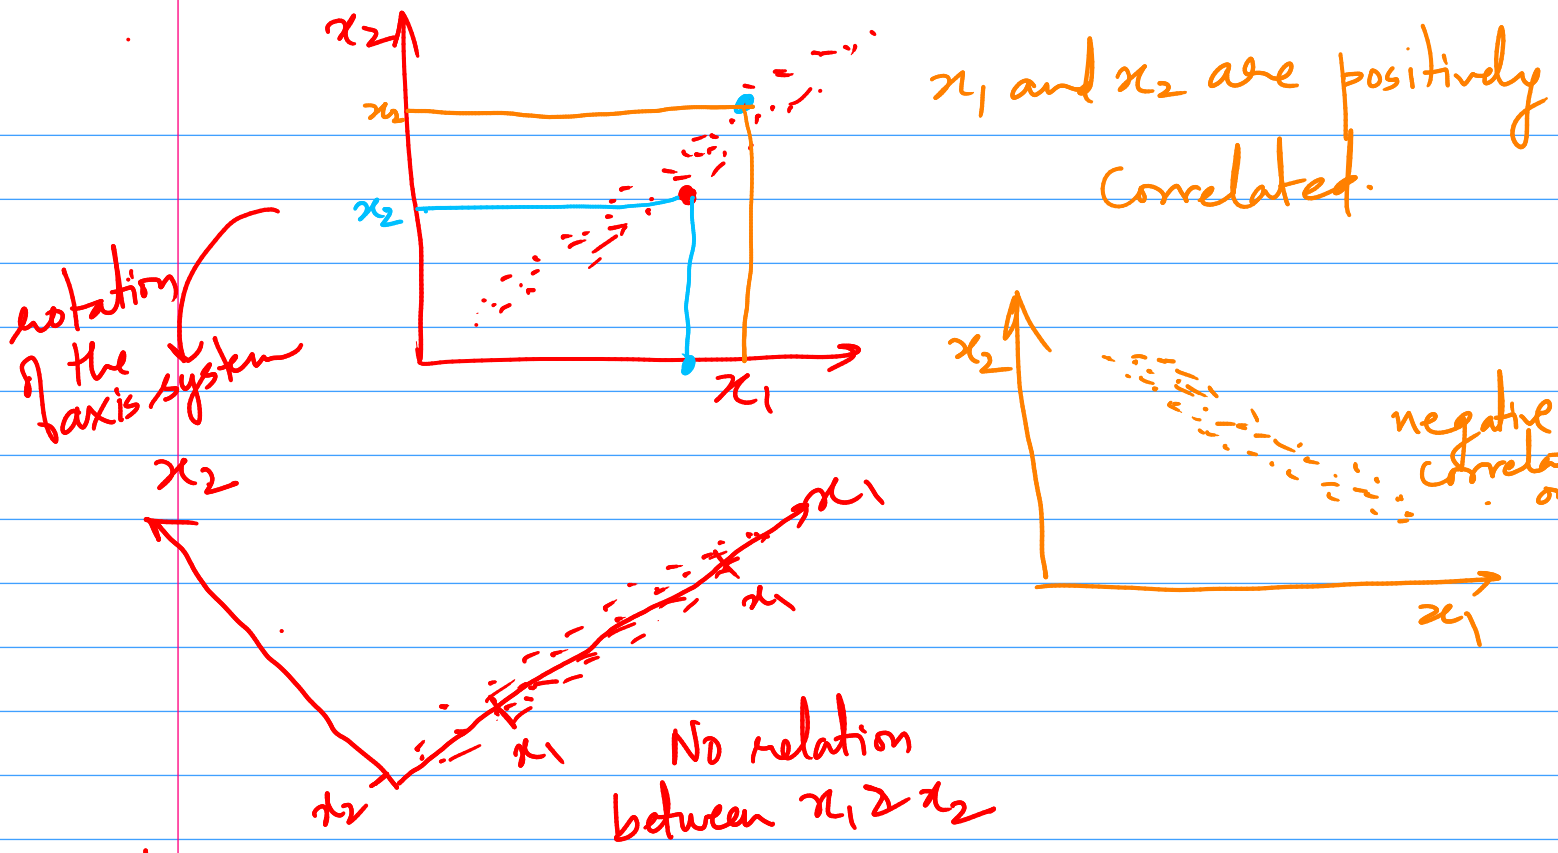 x2
x2
x1 and x2 are positively
correlated.
x2
x1
rotation
of the
axis system
x2
negative
x1
x2
x1
x1
x1
x1
x2
No relation
between x1 & x2